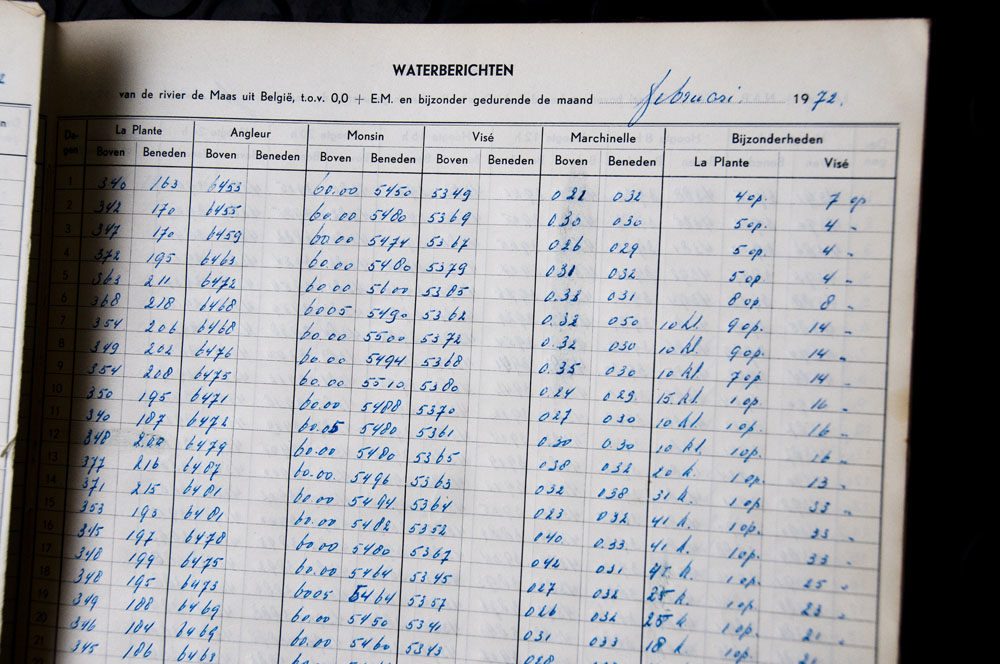 WATERBERICHTEN
van de rivier de Maas uit België, t.o.v. 0,0 + E.M. en bijzonder gedurende de maand februari 1972.
Da-gen La Plante Angleur Monsin Visé Marchinelle Bijzonderheden
Boven Beneden Boven Beneden Boven Beneden Boven Beneden Boven Beneden La Plante Visé
1 340 163 6453 60.00 5450 5349 0 28 032 4 op. 7 op
2 342 170 6455 60.00 5480 5369 0.30 030 5 op. 4 "
3 347 170 6459 60.00 5474 5367 026 029 5 op. 4 "
4 372 195 6463 60.00 5480 5379 031 032 5 op 4 "
5 363 211 6472 60.00 5600 5385 0.33 031 8 op 8 "
6 368 218 6468 6005 5490 5362 0.32 050 10 kl. 9 op. 14 "
7 354 206 6468 60.00 5500 5372 0.32 030 10 kl. 9 op. 14 "
8 349 202 6476 60.00 5494 5368 0.35 030 10 kl 7 op. 14 "
9 354 208 6475 60.00 5510 5380 0.24 029 15 kl. 1 op. 16 "
10 350 195 6471 60.00 5488 5370 027 030 10 kl 1 op. 16 "
11 340 187 6472 60.05 5480 5361 0.30 0.30 10 kl. 1 op. 16 "
12 348 200 6479 60.00 5480 5365 038 032 20 k. 1 op 13 "
13 377 216 6487 60.00 5496 5363 032 038 31 k. 1 op 33 "
14 371 215 6481 60.00 5494 5364 023 032 41 k. 1 op. 33 "
15 353 193 6481 60.00 5482 5352 040 0.33 41 k. 1 op. 33 "
16 345 197 6478 60.00 5480 5367 042 031 k. 1 op. 25 "
17 348 199 6475 60.00 5464 5345 027 032 25 k. 1 op. 23 "
18 348 195 6473 6005 5464 5357 026 032 25 k 1 op. 21 "
19 349 188 6469 60.00 5450 5341 031 033 18 k. 1 op.
20 346 184 6469 60.00 5460 5343 028
21 345 186 6463